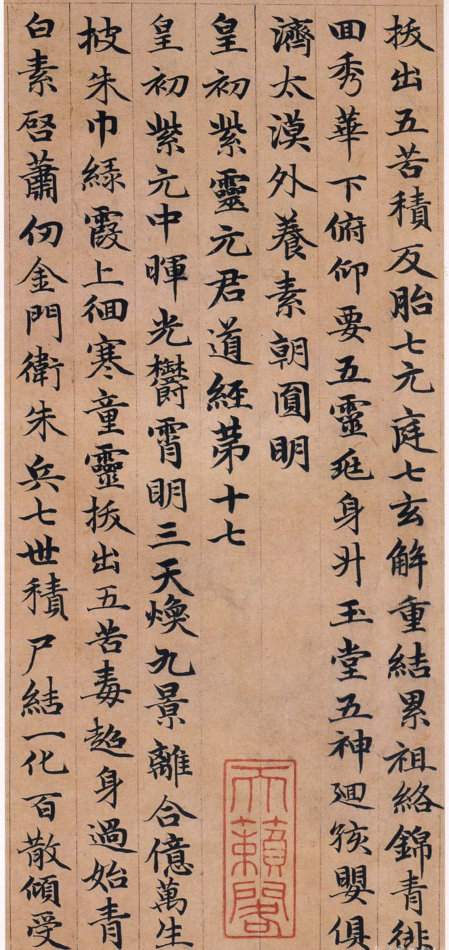 拔出五苦積反胎七元庭七玄解重結累祖絡錦青徘
囬秀華下俯仰要五靈身升玉堂五神廻孩嬰俱
濟太漠外養素朝圓明
皇初紫靈元君道經苐十七
皇初紫元中暉光欝霄明三天煥九景離合億萬生
披朱巾緑霞上徊寒童靈拔出五苦毒超身過始青
白素啓蕭仞金門衛朱兵七世積尸結一化百散傾受
天籟閣